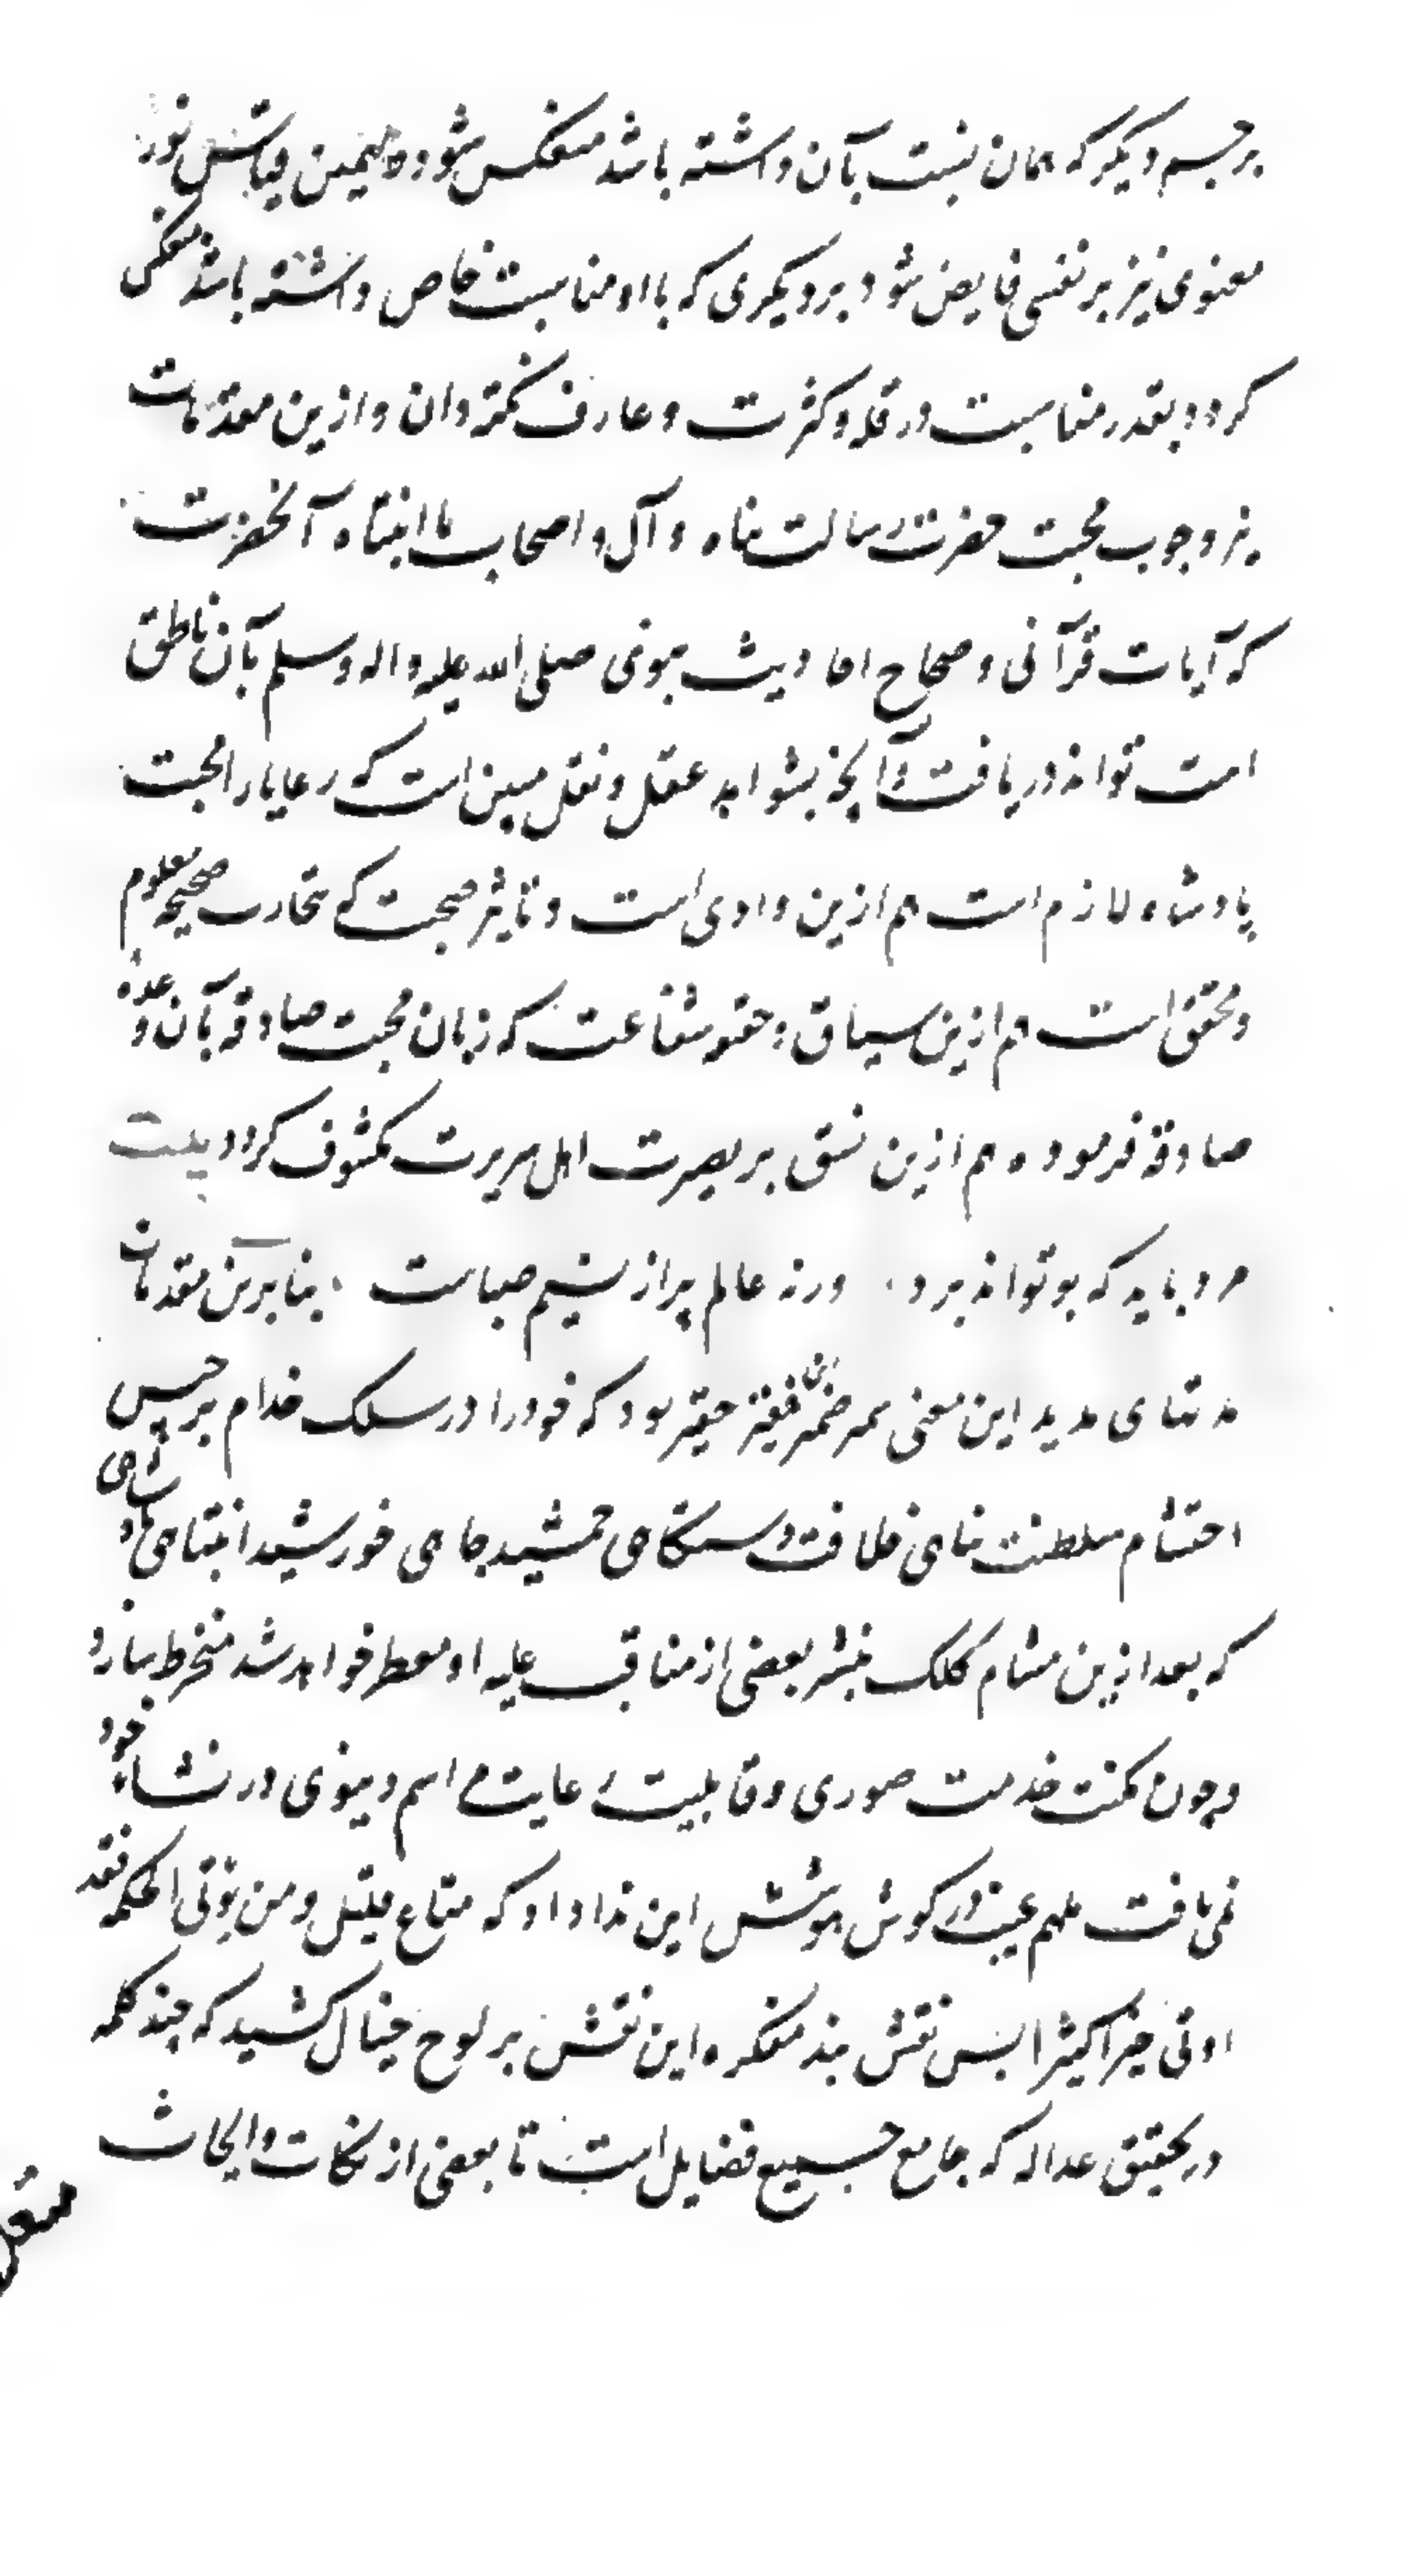 بر جسم دیگر که همان نسبت بآن داشته باشد منعکس شود و همچنین قیاس نور
معنوی نیز بر نفسی فایض شود بر دیگری که باو مناسبت خاص داشته باشد منعکس
کردد بقدر مناسبت در قله و کثرت و عارف نکته دان و ازین مقدمات
نیز وجوب محبت حضرت رسالت پناه و آل و اصحاب با انتباه آنحضرت
که آیات قرآنی و صحاح احادیث نبوی صلی الله علیه و اله و سلم بآن ناطق
است تواند دریافت و آنچه بشواهد عقل و نقل مبین است که رعایا را محبت
پادشاه لازم است هم ازین وادی است و تاثیر صحبت که بتجارب صحیحه معلوم
و محقق است هم ازین سیاق و حقو شفاعت که زبان محبت صادقه بآن وعده
صادقه فرموده هم ازین نسق بر بصیرت اهل سریرت مکشوف کردد بیت
مرد باید که بو تواند برد . ورنه عالم پر از نسیم صباست . بنا برین مقدمات
مدتهای مدید این معنی سمر ضمیر فقیر حقیر بود که خود را در سلک خدام برجیس
احتشام سلطنت پناهی خلافت دستکاهی جمشید جاهی خورشید انتباهی
که بعد ازین مشام کلک بنشر بعضی از مناقب علیه او معطر خواهد شد منخرط سازد
و چون مکنت خدمت صوری و قابلیت رعایت مراسم دنیوی در نشاء خود
نمی یافت ملهم غیب در کوش هوشش این ندا داد که متاع قلیل و من یؤتی الحکمه فقد
اوتی خیرا کثیرا پس نقش بند مفکره این نقش بر لوح خیال کشید که چند کلمه
در تحقیق عداله که جامع جمیع فضایل است تا بعضی از نکات و ابحاث